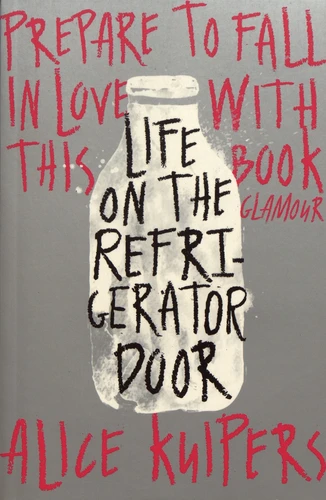 PREPARE TO FALL
IN LOVE WITH
THIS BOOK
GLAMOUR
LIFE
ON THE
REFRI-
GERATOR
DOOR
ALICE KUIPERS